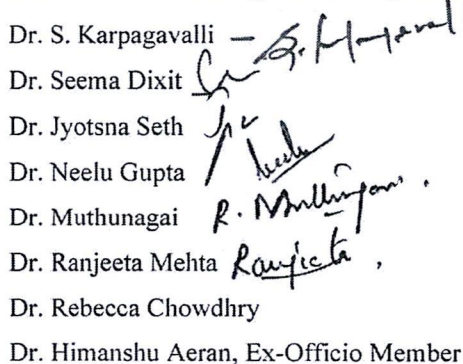 Dr. S. Karpagavalli –
Dr. Seema Dixit
Dr. Jyotsna Seth
Dr. Neelu Gupta Neelu
Dr. Muthunagai R. Muthunagai.
Dr. Ranjeeta Mehta Ranjeeta,
Dr. Rebecca Chowdhry
Dr. Himanshu Aeran, Ex-Officio Member